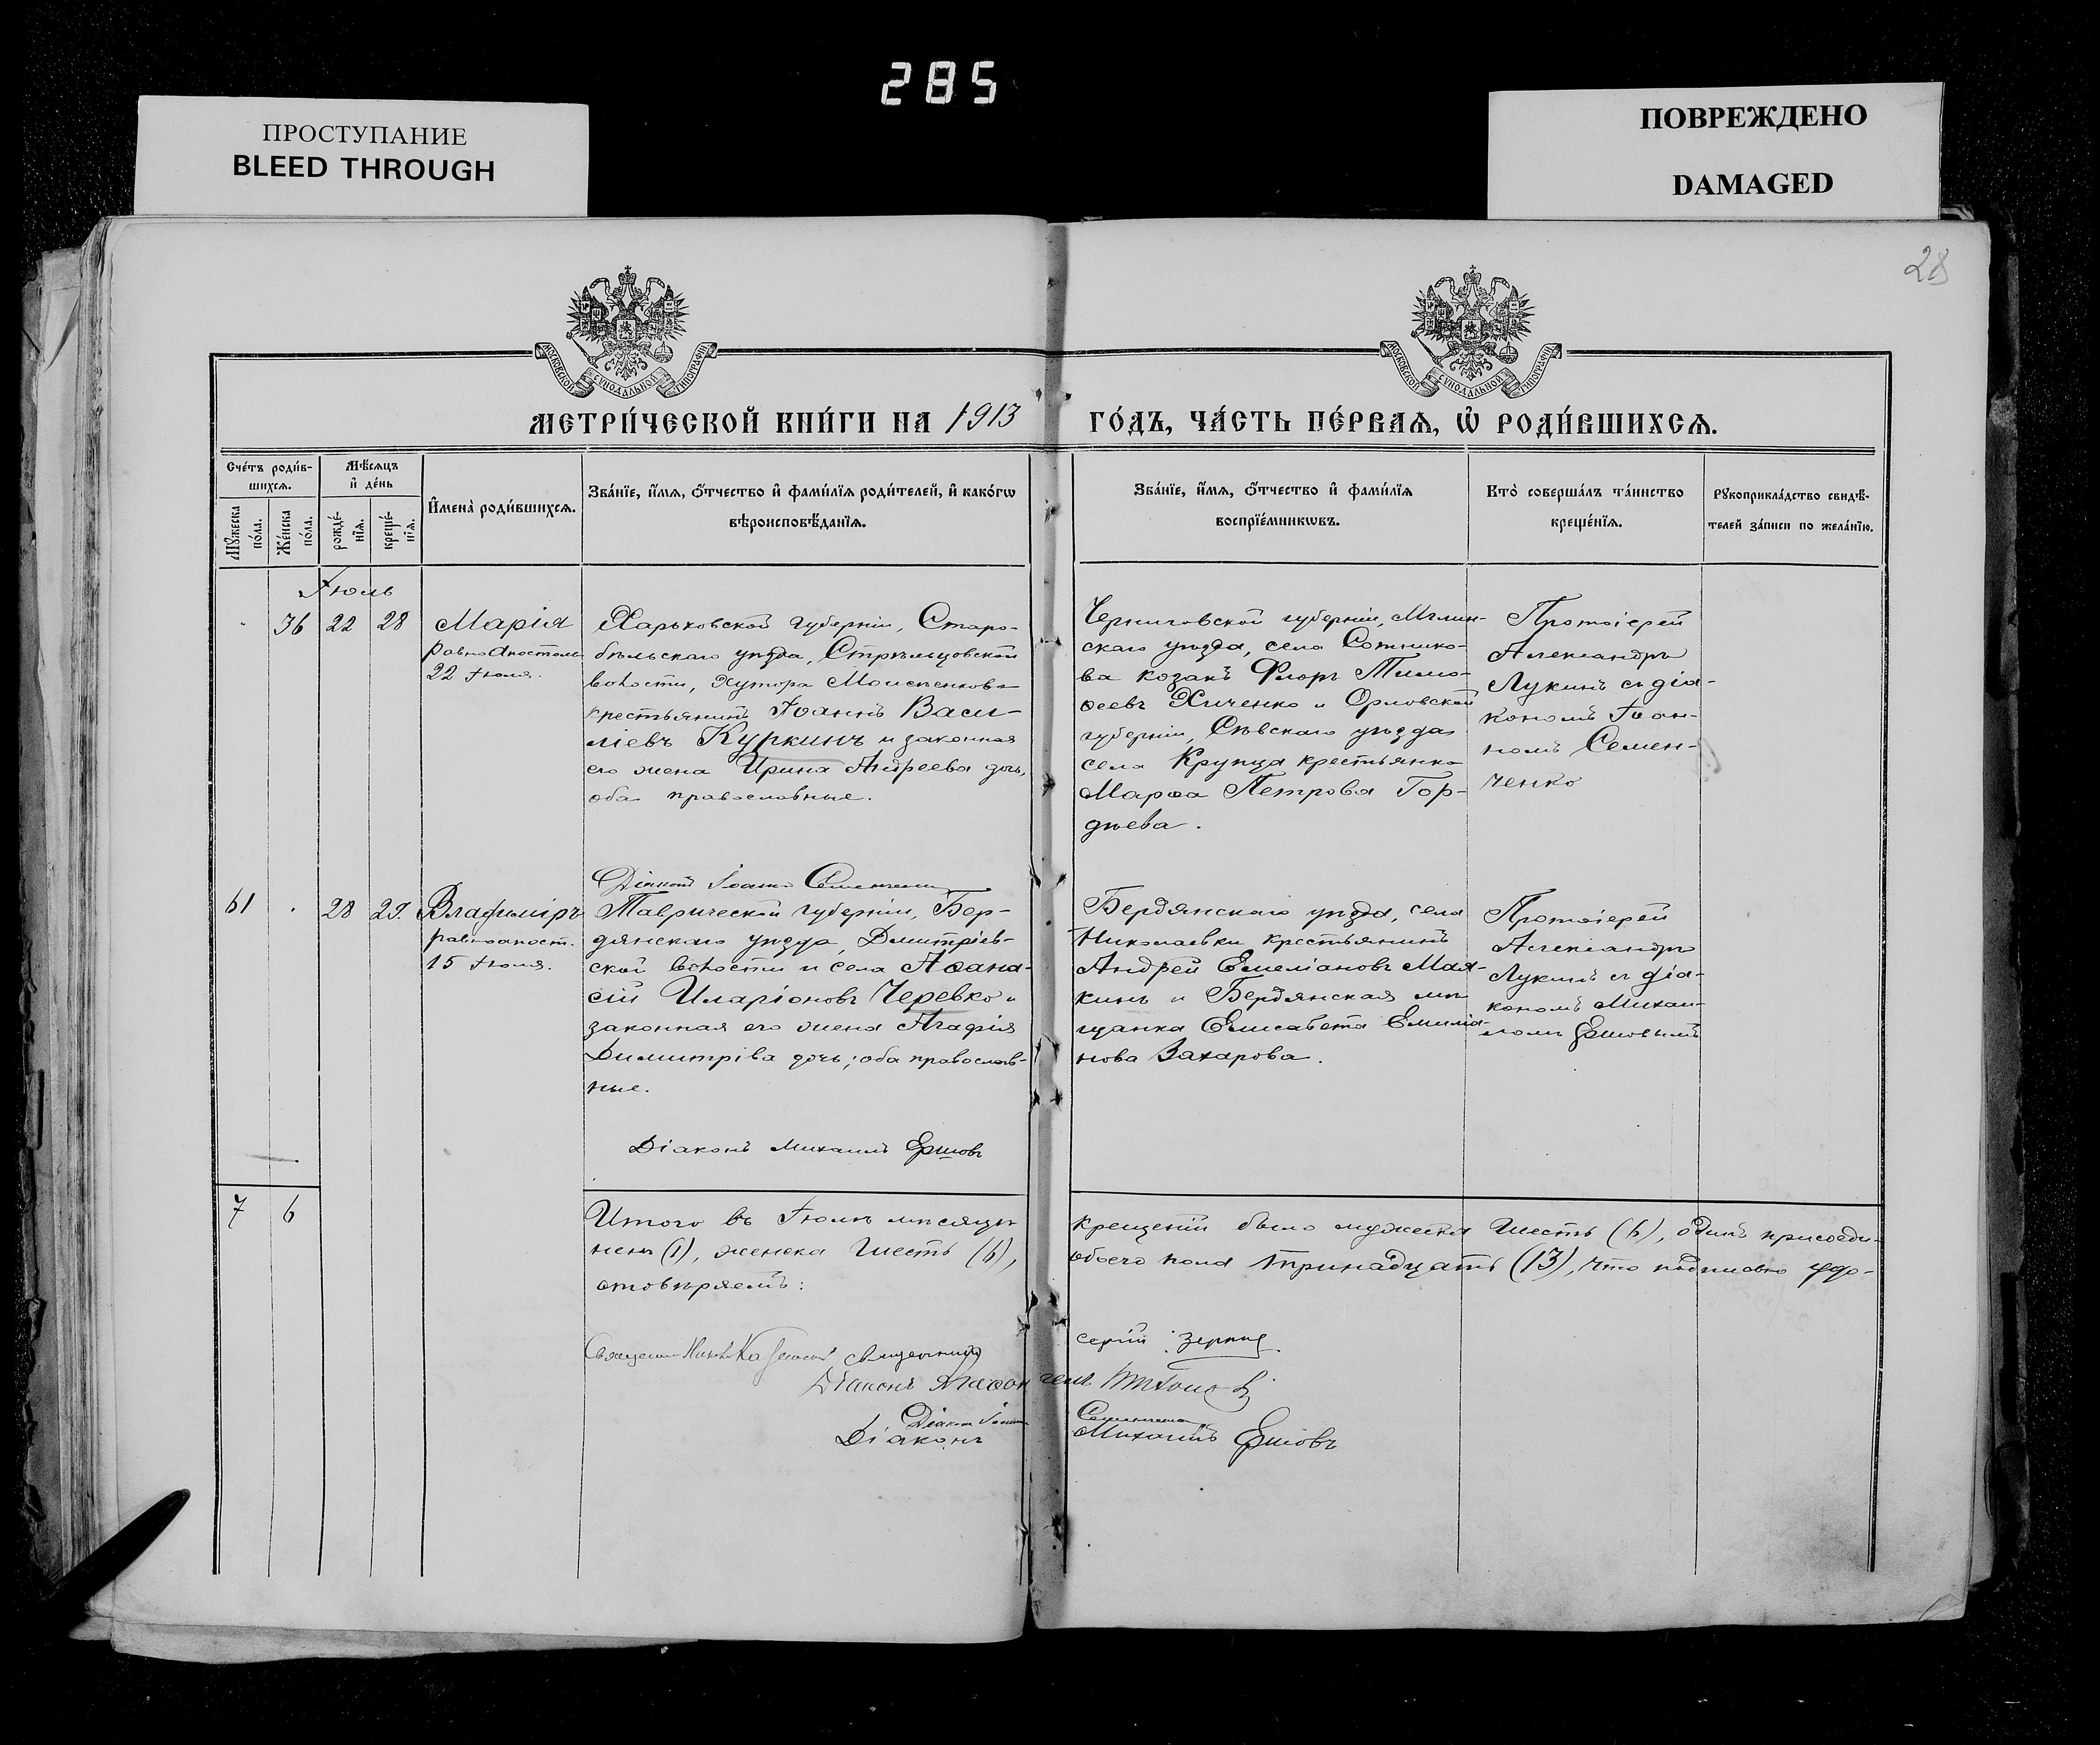 285
ПРОСТУПАНИЕ
BLEED THROUGH
ПОВРЕЖДЕНО
DAMAGED
28
МОСКОВСКОЙ СѴНОДАЛЬНОЙ ТИПОГРАФІИ
МОСКОВСКОЙ СѴНОДАЛЬНОЙ ТИПОГРАФІИ
МЕТРИ́ЧЕСКОЙ КНИ́ГИ НА 1913
ГО́ДЪ, ЧА́СТЬ ПЕ́РВАѦ, Ѡ҆ РОДИ́ВШИХСѦ.
Сче́тъ роди́в-
шихсѧ.
Мꙋ́жеска
по́ла.
Же́нска
по́ла.
Мѣ́сѧцъ
и҆ де́нь
рожде́-
нїѧ.
креще́-
нїѧ.
И҆мена̀ роди́вшихсѧ.
Зва́нїе, и҆́мѧ, ѻ҆́тчество и҆ фами́лїѧ роди́телей, и҆ како́гѡ
вѣроисповѣ́данїѧ.
Зва́нїе, и҆́мѧ, ѻ҆́тчество и҆ фами́лїѧ
воспрїе́мникѡвъ.
Кто̀ соверша́лъ та́инство
креще́нїѧ.
Рꙋкоприкла́дство свидѣ́-
телей за́писи по жела́нїю.
Іюль
36 22 28
Марія
равноапостольн.
22 Іюля.
Харьковской губерніи, Старо-
бѣльскаго уѣзда, Стрѣльцовской
волости, Хутора Моисѣенкова
крестьянинъ Іоаннъ Васи-
ліевъ Куркинъ и законная
его жена Ирина Андреева дочь,
оба православные.
Черниговской губерніи, Мглин-
скаго уѣзда, села Сотнико-
ва козакъ Флоръ Тимо-
ѳеевъ Хиченко и Орловской
губерніи, Сѣвскаго уѣзда
села Крупца крестьянка
Марѳа Петрова Гор-
дѣева.
Протоіерей
Александръ
Лукинъ съ діа-
кономъ Іоан-
номъ Семен-
ченко
Діаконъ Іоаннъ Семенченко
61 28 29.
Владиміръ
равноапост.
15 Іюля.
Таврической губерніи, Бер-
дянскаго уѣзда, Дмитріев-
ской волости и села Аѳана-
сій Иларіоновъ Черевко и
законная его жена Агафія
Димитріва дочь; оба православ-
ные.
Бердянскаго уѣзда, села
Николаевки крестьянинъ
Андрей Емеліановъ Мая-
кинъ и Бердянская мѣ-
щанка Елисавета Емиліа-
нова Захарова.
Протоіерей
Александръ
Лукинъ съ діа-
кономъ Михаи-
ломъ Ершовымъ
Діаконъ Михаилъ Ершовъ
7 6
Итого въ Іюлѣ мѣсяцѣ крещеній было мужеска шесть (6), одинъ присоеди-
ненъ (1), женска шесть (6), обоего пола тринадцать (13), что подписью удо-
стовѣряемъ:
Священникъ
Священникъ Сергій Зернов
Діаконъ Агаѳангелъ Тихонов
Діаконъ Іоаннъ Семенченко
Діаконъ Михаилъ Ершовъ